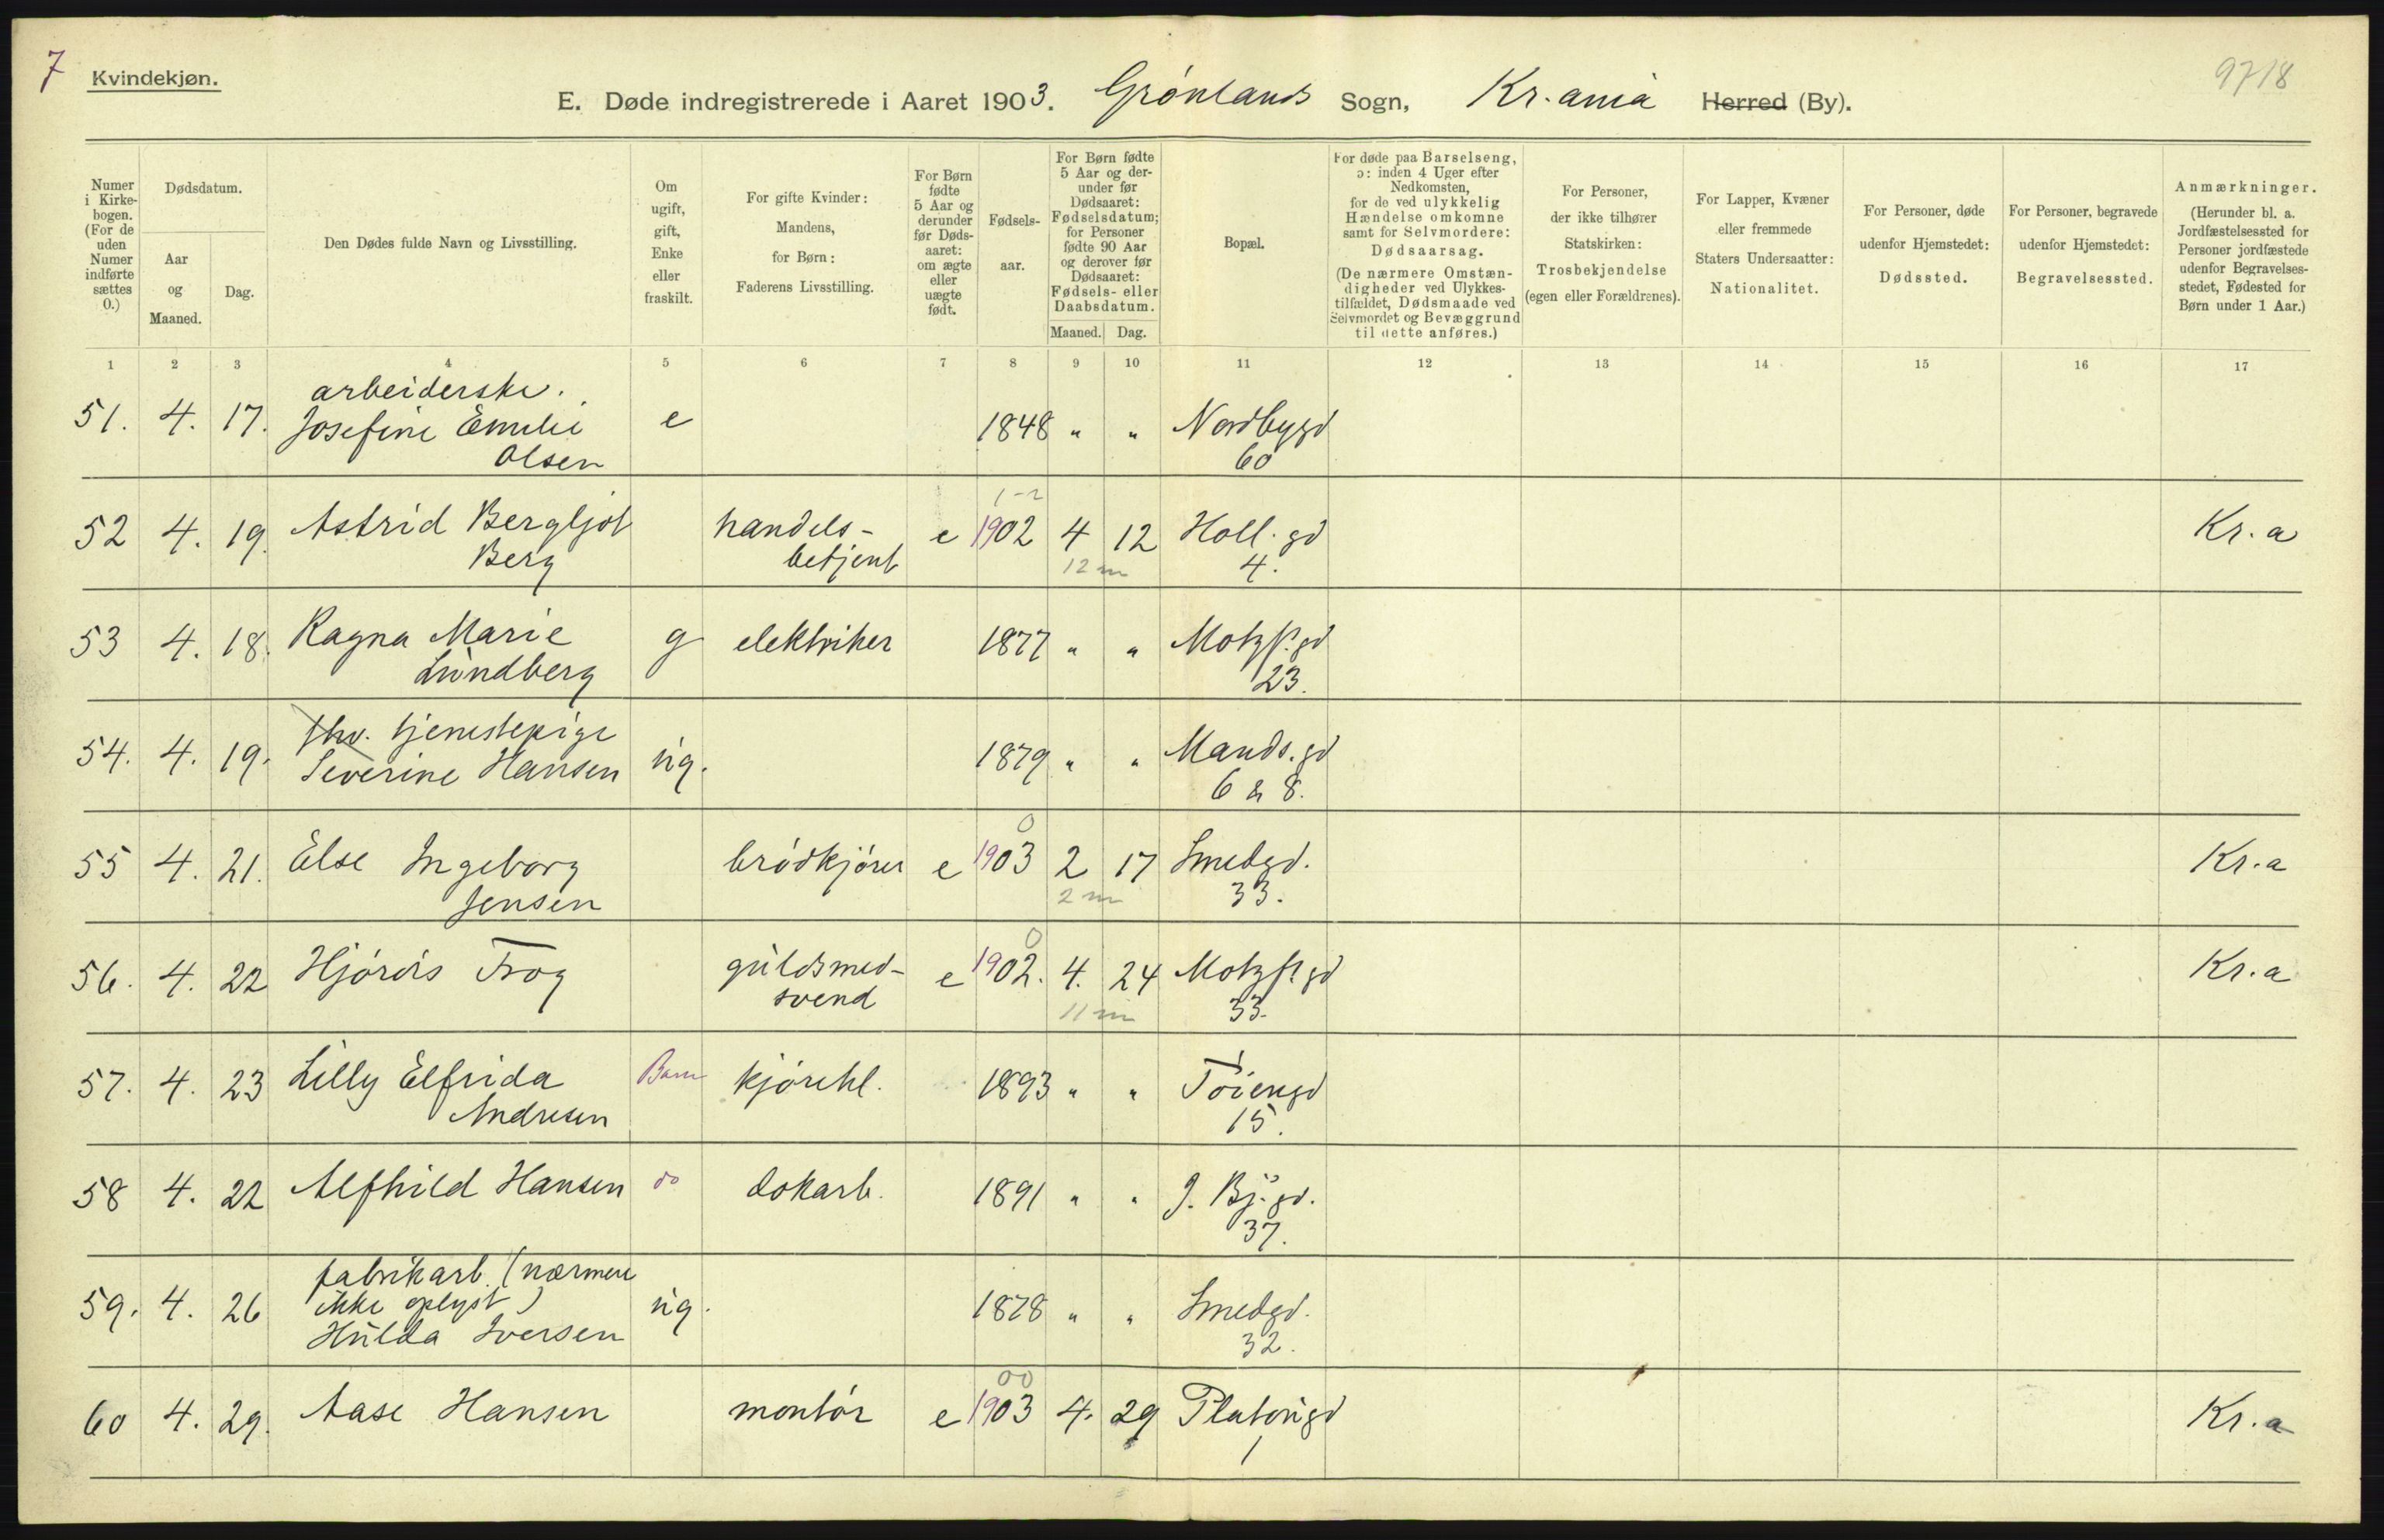 7
Kvindekjøn.
9718
E. Døde indregistrerede i Aaret 1903. Grønlands Sogn, Kr.ania Herred (By).
Numer i Kirke-bogen. (For de uden Numer indførte sættes 0.)
Dødsdatum.
Aar og Maaned.
Dag.
Den Dødes fulde Navn og Livsstilling.
Om ugift, gift, Enke eller fraskilt.
For gifte Kvinder: Mandens, for Børn: Faderens Livsstilling.
For Børn fødte 5 Aar og derunder før Døds-aaret: om ægte eller uægte født.
Fødsels-aar.
For Børn fødte 5 Aar og der-under før Dødsaaret: Fødselsdatum; for Personer fødte 90 Aar og derover før Dødsaaret: Fødsels- eller Daabsdatum.
Maaned. Dag.
Bopæl.
For døde paa Barselseng, ɔ: inden 4 Uger efter Nedkomsten, for de ved ulykkelig Hændelse omkomne samt for Selvmordere: Dødsaarsag. (De nærmere Omstæn-digheder ved Ulykkes-tilfældet, Dødsmaade ved Selvmordet og Bevæggrund til dette anføres.)
For Personer, der ikke tilhører Statskirken: Trosbekjendelse (egen eller Forældrenes).
For Lapper, Kvæner eller fremmede Staters Undersaatter: Nationalitet.
For Personer, døde udenfor Hjemstedet: Dødssted.
For Personer, begravede udenfor Hjemstedet: Begravelsessted.
Anmærkninger. (Herunder bl. a. Jordfæstelsessted for Personer jordfæstede udenfor Begravelses-stedet, Fødested for Børn under 1 Aar.)
1 2 3 4 5 6 7 8 9 10 11 12 13 14 15 16 17
arbeiderske.
51. 4. 17. Josefine Emilie e 1848 " " Nordbygd
Olsen 60
1-2
52 4. 19. Astrid Bergljot handels- e 1902 4 12 Holl. gd Kr.a
Berg betjent 12 m 4.
53 4. 18. Ragna Marie g elektriker 1877 " " Motzf. gd
Lundberg 23.
fhv. tjenestepige
54. 4. 19. Severine Hansen ug. 1879 " " Mands. gd
6 & 8.
0
55 4. 21. Else Ingeborg brødkjører e 1903 2 17 Smedgd. Kr.a
Jensen 2 m 33.
0
56. 4. 22 Hjørdis Trog guldsmed- e 1902. 4. 24 Motzf. gd Kr.a
svend 11 m 33.
57. 4. 23 Lilly Elfrida Barn kjørekl. 1893 " " Tøiengd
Andresen 15.
58 4. 22 Alfhild Hansen do dokarb. 1891 " " J. Bj. gd.
37.
fabrikarb. (nærmere
59. 4. 26 ikke oplyst) ug. 1878 " " Smedgd.
Hulda Iversen 32.
00
60 4. 29. Aase Hansen montør e 1903 4. 29 Platougd Kr.a
1